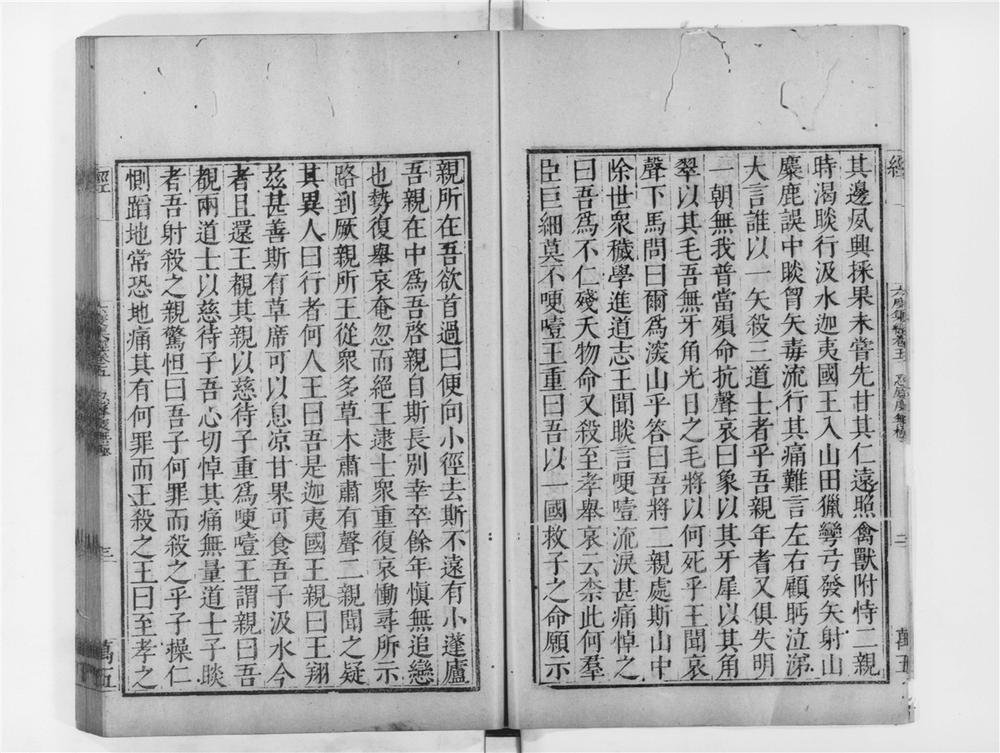 其邊夙興採果未嘗先甘其仁遠照禽獸附恃二親
時渴睒行汲水迦夷國王入山田獵彎弓發矢射山
麋鹿誤中睒胷矢毒流行其痛難言左右顧眄泣涕
大言誰以一矢殺三道士者乎吾親年耆又俱失明
一朝無我普當殞命抗聲哀曰象以其牙犀以其角
翠以其毛吾無牙角光目之毛將以何死乎王聞哀
聲下馬問曰爾爲深山乎答曰吾將二親處斯山中
除世衆穢學進道志王聞睒言哽噎流淚甚痛悼之
曰吾爲不仁殘夭物命又殺至孝舉哀云柰此何羣
臣巨細莫不哽噎王重曰吾以一國救子之命願示
親所在吾欲首過曰便向小徑去斯不遠有小蓬廬
吾親在中爲吾啓親自斯長別幸卒餘年慎無追戀
也勢復舉哀奄忽而絕王逮士衆重復哀慟尋所示
路到厥親所王從衆多草木肅肅有聲二親聞之疑
其異人曰行者何人王曰吾是迦夷國王親曰王翔
茲甚善斯有草席可以息涼甘果可食吾子汲水今
者且還王覩其親以慈待子重爲哽噎王謂親曰吾
覩兩道士以慈待子吾心切悼其痛無量道士子睒
者吾射殺之親驚怛曰吾子何罪而殺之乎子操仁
惻蹈地常恐地痛其有何罪而王殺之王曰至孝之
經
三
萬五